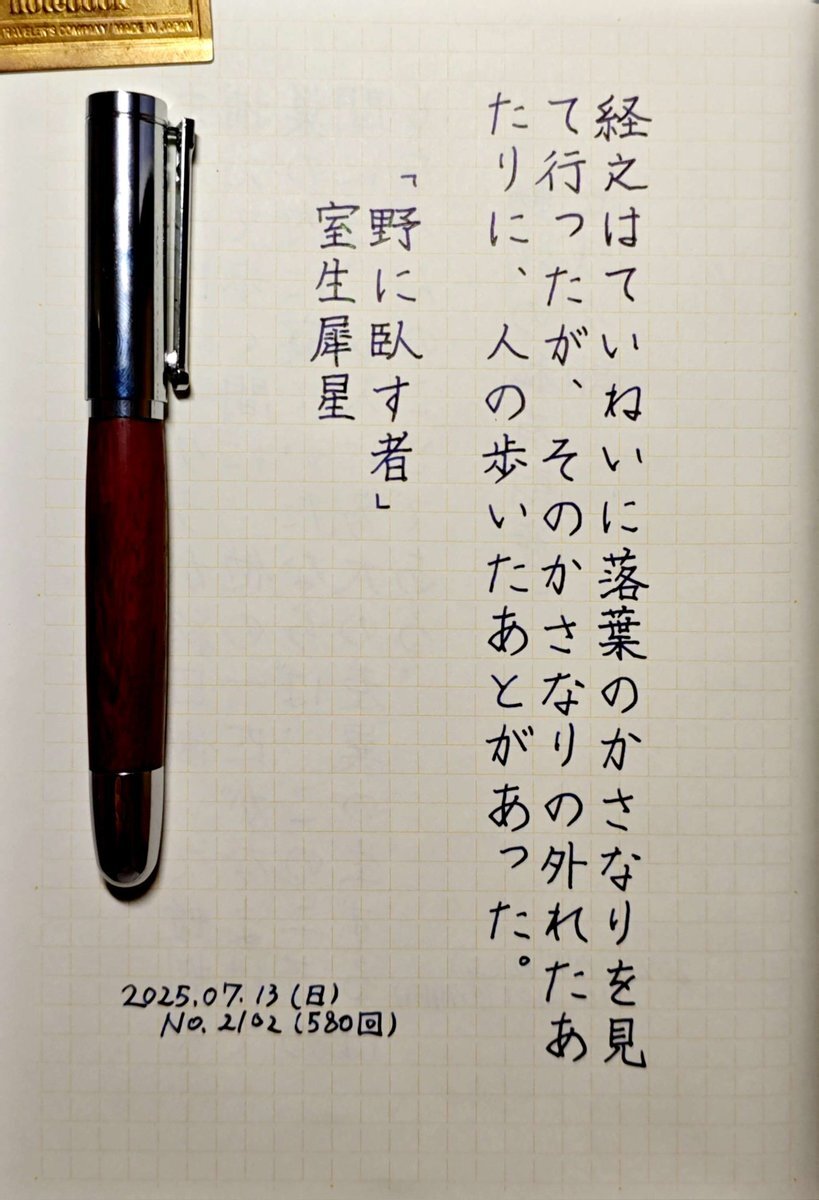 notebook
TRAVELER'S COMPANY / MADE IN JAPAN
経文はていねいに落葉のかさなりを見
て行ったが、そのかさなりの外れたあ
たりに、人の歩いたあとがあった。
「野に臥す者」
室生犀星
2025.07.13(日)
No.2102(580回)